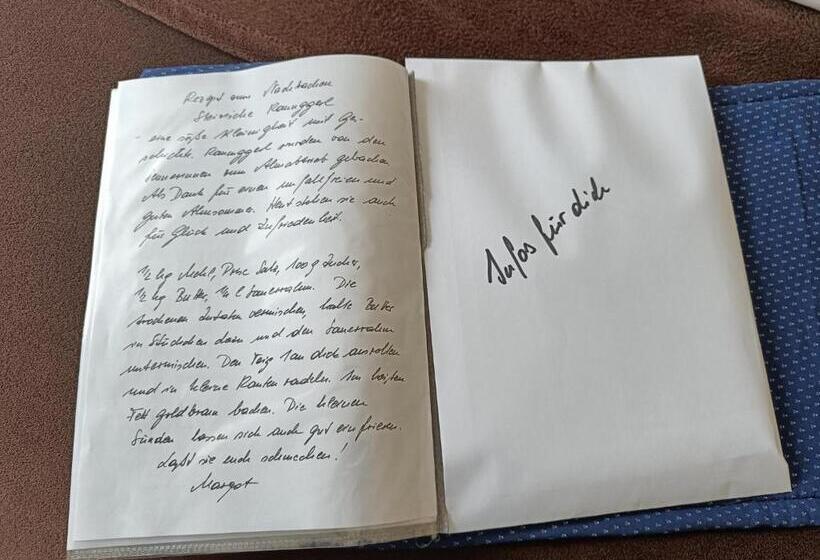 Rezept zum Nachkochen
Steirische Raunggerl
- eine süße Kleinigkeit mit Ge-
schichte. Raunggerl wurden von den
Bäuerinnen zum Almabtrieb gebacken
Als Dank für einen unfallfreien und
guten Almsommer. Heut stehen sie auch
für Glück und Zufriedenheit.
1/2 kg Mehl, Prise Salz, 100 g Zucker,
1/2 kg Butter, 1/4 l Sauerrahm. Die
trockenen Zutaten vermischen, kalte Butter
in Stückchen dazu und den Sauerrahm
untermischen. Den Teig 1cm dick ausrollen
und in kleine Rauten radeln. Im heißen
Fett goldbraun backen. Die kleinen
Sünden lassen sich auch gut einfrieren.
Laßt sie euch schmecken!
Margot
Infos für dich